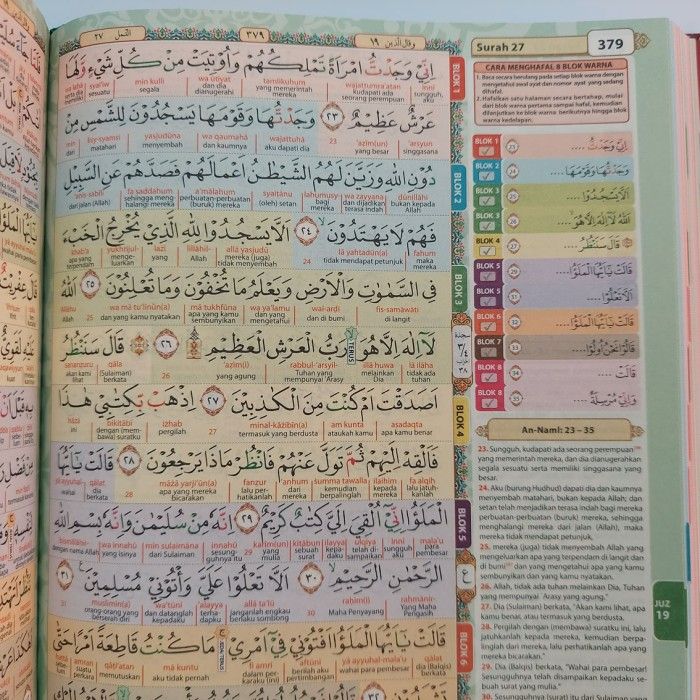 النمل ٢٧
٣٧٩
وقال الذين ١٩
اِنِّيْ وَجَدْتُّ امْرَاَةً تَمْلِكُهُمْ وَاُوْتِيَتْ مِنْ كُلِّ شَيْءٍ وَّلَهَا
min kulli
segala
wa ūtiyat
dan dia dianugerahi
tamlikuhum
yang memerintah mereka
wajattumra'atan
kudapati ada seorang perempuan
innī
sungguh, aku
عَرْشٌ عَظِيْمٌ ٢٣ وَجَدْتُّهَا وَقَوْمَهَا يَسْجُدُوْنَ لِلشَّمْسِ مِنْ
min
dari
lisy-syamsi
matahari
yasjudūna
menyembah
wa qaumahā
dan kaumnya
wajattuhā
aku dapati dia
23
'aẓīm(un)
yang besar
'arsyun
singgasana
دُوْنِ اللّٰهِ وَزَيَّنَ لَهُمُ الشَّيْطٰنُ اَعْمَالَهُمْ فَصَدَّهُمْ عَنِ السَّبِيْلِ
'anis-sabīl
dari jalan (Allah)
fa ṣaddahum
sehingga menghalangi mereka
a'mālahum
perbuatan-perbuatan (buruk) mereka
syaiṭānu
(oleh) setan
lahumusy
bagi mereka
wa zayyana
dan dijadikan terasa indah
dūnillāhi
bukan kepada Allah
فَهُمْ لَا يَهْتَدُوْنَ ٢٤ اَلَّا يَسْجُدُوْا لِلّٰهِ الَّذِيْ يُخْرِجُ الْخَبْءَ
khab'a
apa yang terpendam
yukhrijul
mengeluarkan
lażī
yang
lillāhil
Allah
allā yasjudū
mereka (juga) tidak menyembah
24
lā yahtadūn(a)
tidak mendapat petunjuk
fahum
maka mereka
فِى السَّمٰوٰتِ وَالْاَرْضِ وَيَعْلَمُ مَا تُخْفُوْنَ وَمَا تُعْلِنُوْنَ ٢٥ اَللّٰهُ
Allāhu
Allah
25
wa mā tu'linūn(a)
dan yang kamu nyatakan
mā tukhfūna
apa yang kamu sembunyikan
wa ya'lamu
dan yang mengetahui
wal-arḍi
dan di bumi
fis-samāwāti
di langit
لَآ اِلٰهَ اِلَّا هُوَۙ رَبُّ الْعَرْشِ الْعَظِيْمِ ٢٦ قَالَ سَنَنْظُرُ
TERUS
sananẓuru
akan kami lihat
qāla
(Sulaiman) berkata
26
'aẓīm(i)
yang agung
rabbul-'arsyil
Tuhan yang mempunyai 'Arasy
illā huwa
melainkan Dia
lā ilāha
tidak ada tuhan
اَصَدَقْتَ اَمْ كُنْتَ مِنَ الْكٰذِبِيْنَ ٢٧ اِذْهَبْ بِّكِتٰبِيْ هٰذَا
hāżā
ini
bikitābī
dengan (membawa) suratku
iżhab
pergilah
27
minal-kāżibīn(a)
termasuk yang berdusta
am kunta
ataukah kamu
aṣadaqta
apa kamu benar
فَاَلْقِهْ اِلَيْهِمْ ثُمَّ تَوَلَّ عَنْهُمْ فَانْظُرْ مَاذَا يَرْجِعُوْنَ ٢٨ قَالَتْ يٰٓاَيُّهَا
qālat
dia (Balqis) berkata
28
māżā yarji'ūn(a)
apa yang mereka bicarakan
fanẓur
lalu perhatikanlah
'anhum
dari mereka
ṡumma tawalla
kemudian berpalinglah
ilaihim
kepada mereka
fa alqih
lalu jatuhkanlah
الْمَلَؤُا اِنِّيْٓ اُلْقِيَ اِلَيَّ كِتٰبٌ كَرِيْمٌ ٢٩ اِنَّهٗ مِنْ سُلَيْمٰنَ وَاِنَّهٗ بِسْمِ اللّٰهِ
bismillāhir
dengan nama Allah
wa innahū
dan yang isinya
min sulaimāna
dari Sulaiman
innahū
sesungguhnya itu
29
karīm(un)
yang mulia
kitābun
sebuah surat
ilayya
kepadaku
ulqiya
telah disampaikan
innī
sungguh aku
mala'u
para pembesar
الرَّحْمٰنِ الرَّحِيْمِ ٣٠ اَلَّا تَعْلُوْا عَلَيَّ وَأْتُوْنِيْ مُسْلِمِيْنَ ٣١
31
muslimīn(a)
orang-orang yang berserah diri
wa'tūnī
dan datanglah kepadaku
'alayya
terhadapku
allā ta'lū
janganlah engkau berlaku sombong
30
raḥīm(i)
Maha Penyayang
raḥmānir-
Yang Maha Pengasih
قَالَتْ يٰٓاَيُّهَا الْمَلَؤُا اَفْتُوْنِيْ فِيْٓ اَمْرِيْ مَا كُنْتُ قَاطِعَةً اَمْرًا حَتّٰى
amran
suatu perkara
qāṭi'atan
memutuskan
mā kuntu
aku tidak pernah
fī amrī
dalam perkaraku (ini)
aftūnī
berilah aku pertimbangan
yā ayyuhal-mala'u
wahai para pembesar
qālat
dia (Balqis) berkata
BLOK 1
BLOK 2
BLOK 3
BLOK 4
BLOK 5
BLOK 6
Surah 27
379
CARA MENGHAFAL 8 BLOK WARNA
1. Baca secara berulang pada setiap blok warna dengan mengingat awal surat dan nomor ayat yang sedang dihafal.
2. Hafalkan satu halaman secara bertahap, mulai dari blok warna pertama sampai hafal, kemudian dilanjutkan ke blok warna berikutnya hingga blok warna kedelapan.
BLOK 1 ٢٣ اِنِّيْ وَجَدْتُّ ....
BLOK 2 ٢٤ وَجَدْتُّهَا وَقَوْمَهَا ....
BLOK 3 ٢٥ اَلَّا يَسْجُدُوْا ....
BLOK 3 ٢٦ اَللّٰهُ لَآ اِلٰهَ اِلَّا هُوَ ....
BLOK 4 ٢٧ قَالَ سَنَنْظُرُ ....
BLOK 5 ٢٩ قَالَتْ يٰٓاَيُّهَا الْمَلَؤُا ....
BLOK 5 ٣١ اَلَّا تَعْلُوْا ....
BLOK 6 ٣٢ قَالَتْ يٰٓاَيُّهَا الْمَلَؤُا ....
BLOK 7 ٣٣ قَالُوْا نَحْنُ اُولُوْا ....
BLOK 8 ٣٤ قَالَتْ ....
BLOK 8 ٣٥ وَاِنِّيْ مُرْسِلَةٌ ....
An-Naml: 23 – 35
23. Sungguh, kudapati ada seorang perempuan yang memerintah mereka, dan dia dianugerahi segala sesuatu serta memiliki singgasana yang besar.
24. Aku (burung Hudhud) dapati dia dan kaumnya menyembah matahari, bukan kepada Allah; dan setan telah menjadikan terasa indah bagi mereka perbuatan-perbuatan (buruk) mereka, sehingga menghalangi mereka dari jalan (Allah), maka mereka tidak mendapat petunjuk,
25. mereka (juga) tidak menyembah Allah yang mengeluarkan apa yang terpendam di langit dan di bumi dan yang mengetahui apa yang kamu sembunyikan dan yang kamu nyatakan.
26. Allah, tidak ada tuhan melainkan Dia, Tuhan yang mempunyai 'Arasy yang agung."
27. Dia (Sulaiman) berkata, "Akan kami lihat, apa kamu benar, atau termasuk yang berdusta.
28. Pergilah dengan (membawa) suratku ini, lalu jatuhkanlah kepada mereka, kemudian berpalinglah dari mereka, lalu perhatikanlah apa yang mereka bicarakan."
29. Dia (Balqis) berkata, "Wahai para pembesar! Sesungguhnya telah disampaikan kepadaku sebuah surat yang mulia."
JUZ
19